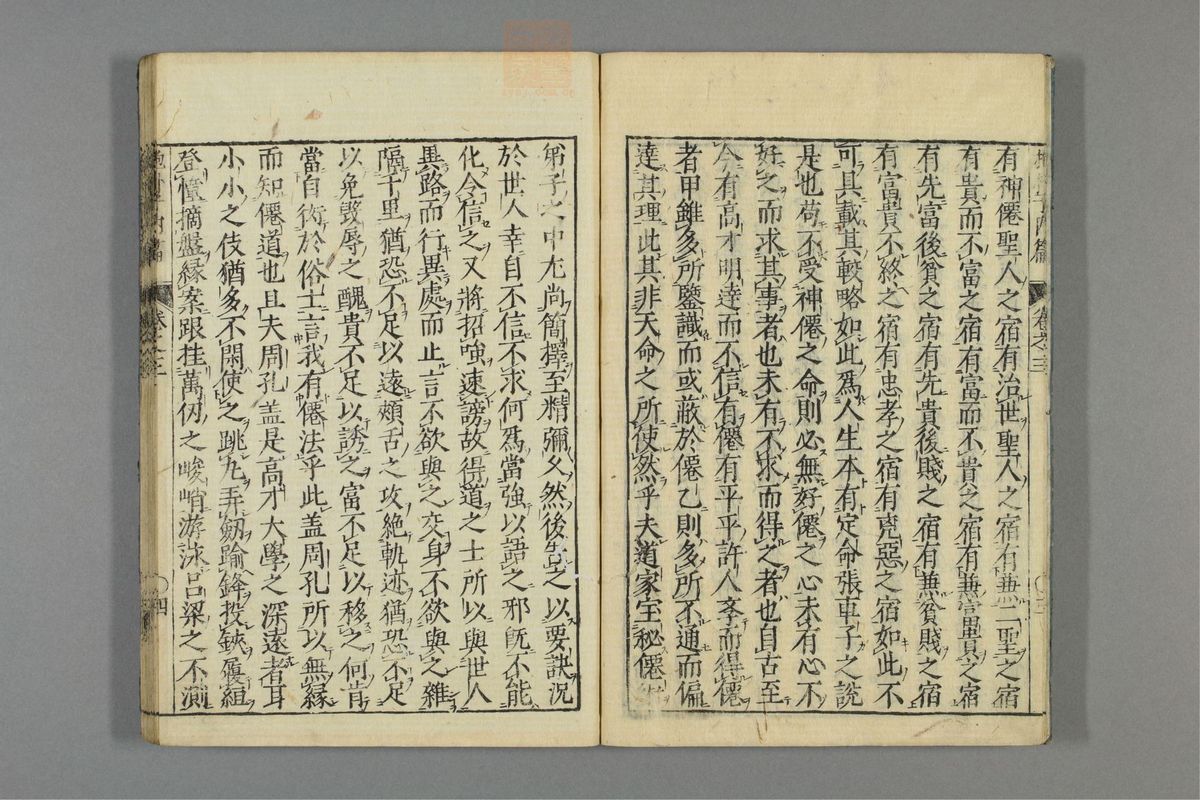 有神僊聖人之宿有治世聖人之宿有兼二聖之宿
有貴而不富之宿有富而不貴之宿有兼富貴之宿
有先富後貧之宿有先貴後賤之宿有兼貧賤之宿
有富貴不終之宿有忠孝之宿有兇惡之宿如此不
可具載其較略如此爲人生本有定命張車子之說
是也苟不受神僊之命則必無好僊之心未有心不
好之而求其事者也未有不求而得之者也自古至
今有高才明達而不信有僊有平平許人學而得僊
者甲雖多所鑒識而或蔽於僊乙則多所不通而偏
達其理此其非天命之所使然乎夫道家宝秘僊術
弟子之中尤尚簡擇至精彌久然後告之以要訣況
於世人幸自不信不求何爲當強以語之邪旣不能
化令信之又將招嗤速謗故得道之士所以與世人
異路而行異處而止言不欲與之交身不欲與之雜
隔千里猶恐不足以遠煩舌之攻絶軌迹猶恐不足
以免毀辱之醜貴不足以誘之富不足以移之何肯
當自衒於俗士言我有僊法乎此盖周孔所以無緣
而知僊道也且夫周孔盖是高才大學之深遠者耳
小小之伎猶多不閑使之跳丸弄劒踰鋒投鋏履絙
登幢摘盤緣案跟挂萬仞之峻峭游泳吕梁之不測
卷之三
四